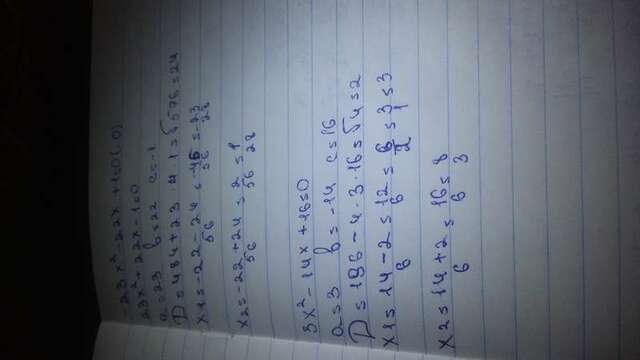 -23x² - 22x + 1 = 0 (:-0)
23x² + 22x - 1 = 0
a = 23 b = 22 c = -1
D = 484 + 23 · 4 · 1 = √576 = 24
x1 = -22 - 24 / 56 = -46 / 56 = -23 / 28
x2 = -22 + 24 / 56 = 2 / 56 = 1 / 28
3x² - 14x + 16 = 0
a = 3 b = -14 c = 16
D = 196 - 4 · 3 · 16 = √4 = 2
x1 = 14 - 2 / 6 = 12 / 6 = 6 / 2 = 3 / 1 = 3
x2 = 14 + 2 / 6 = 16 / 6 = 8 / 3